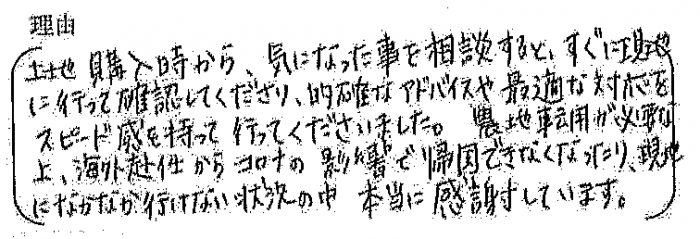 理由
土地購入時から、気になった事を相談すると、すぐに現地
に行って確認してくださり、的確なアドバイスや最適な対応を
スピード感を持って行ってくださいました。農地転用が必要な
上、海外赴任からコロナの影響で帰国できなくなったり、現地
になかなか行けない状況の中本当に感謝しています。